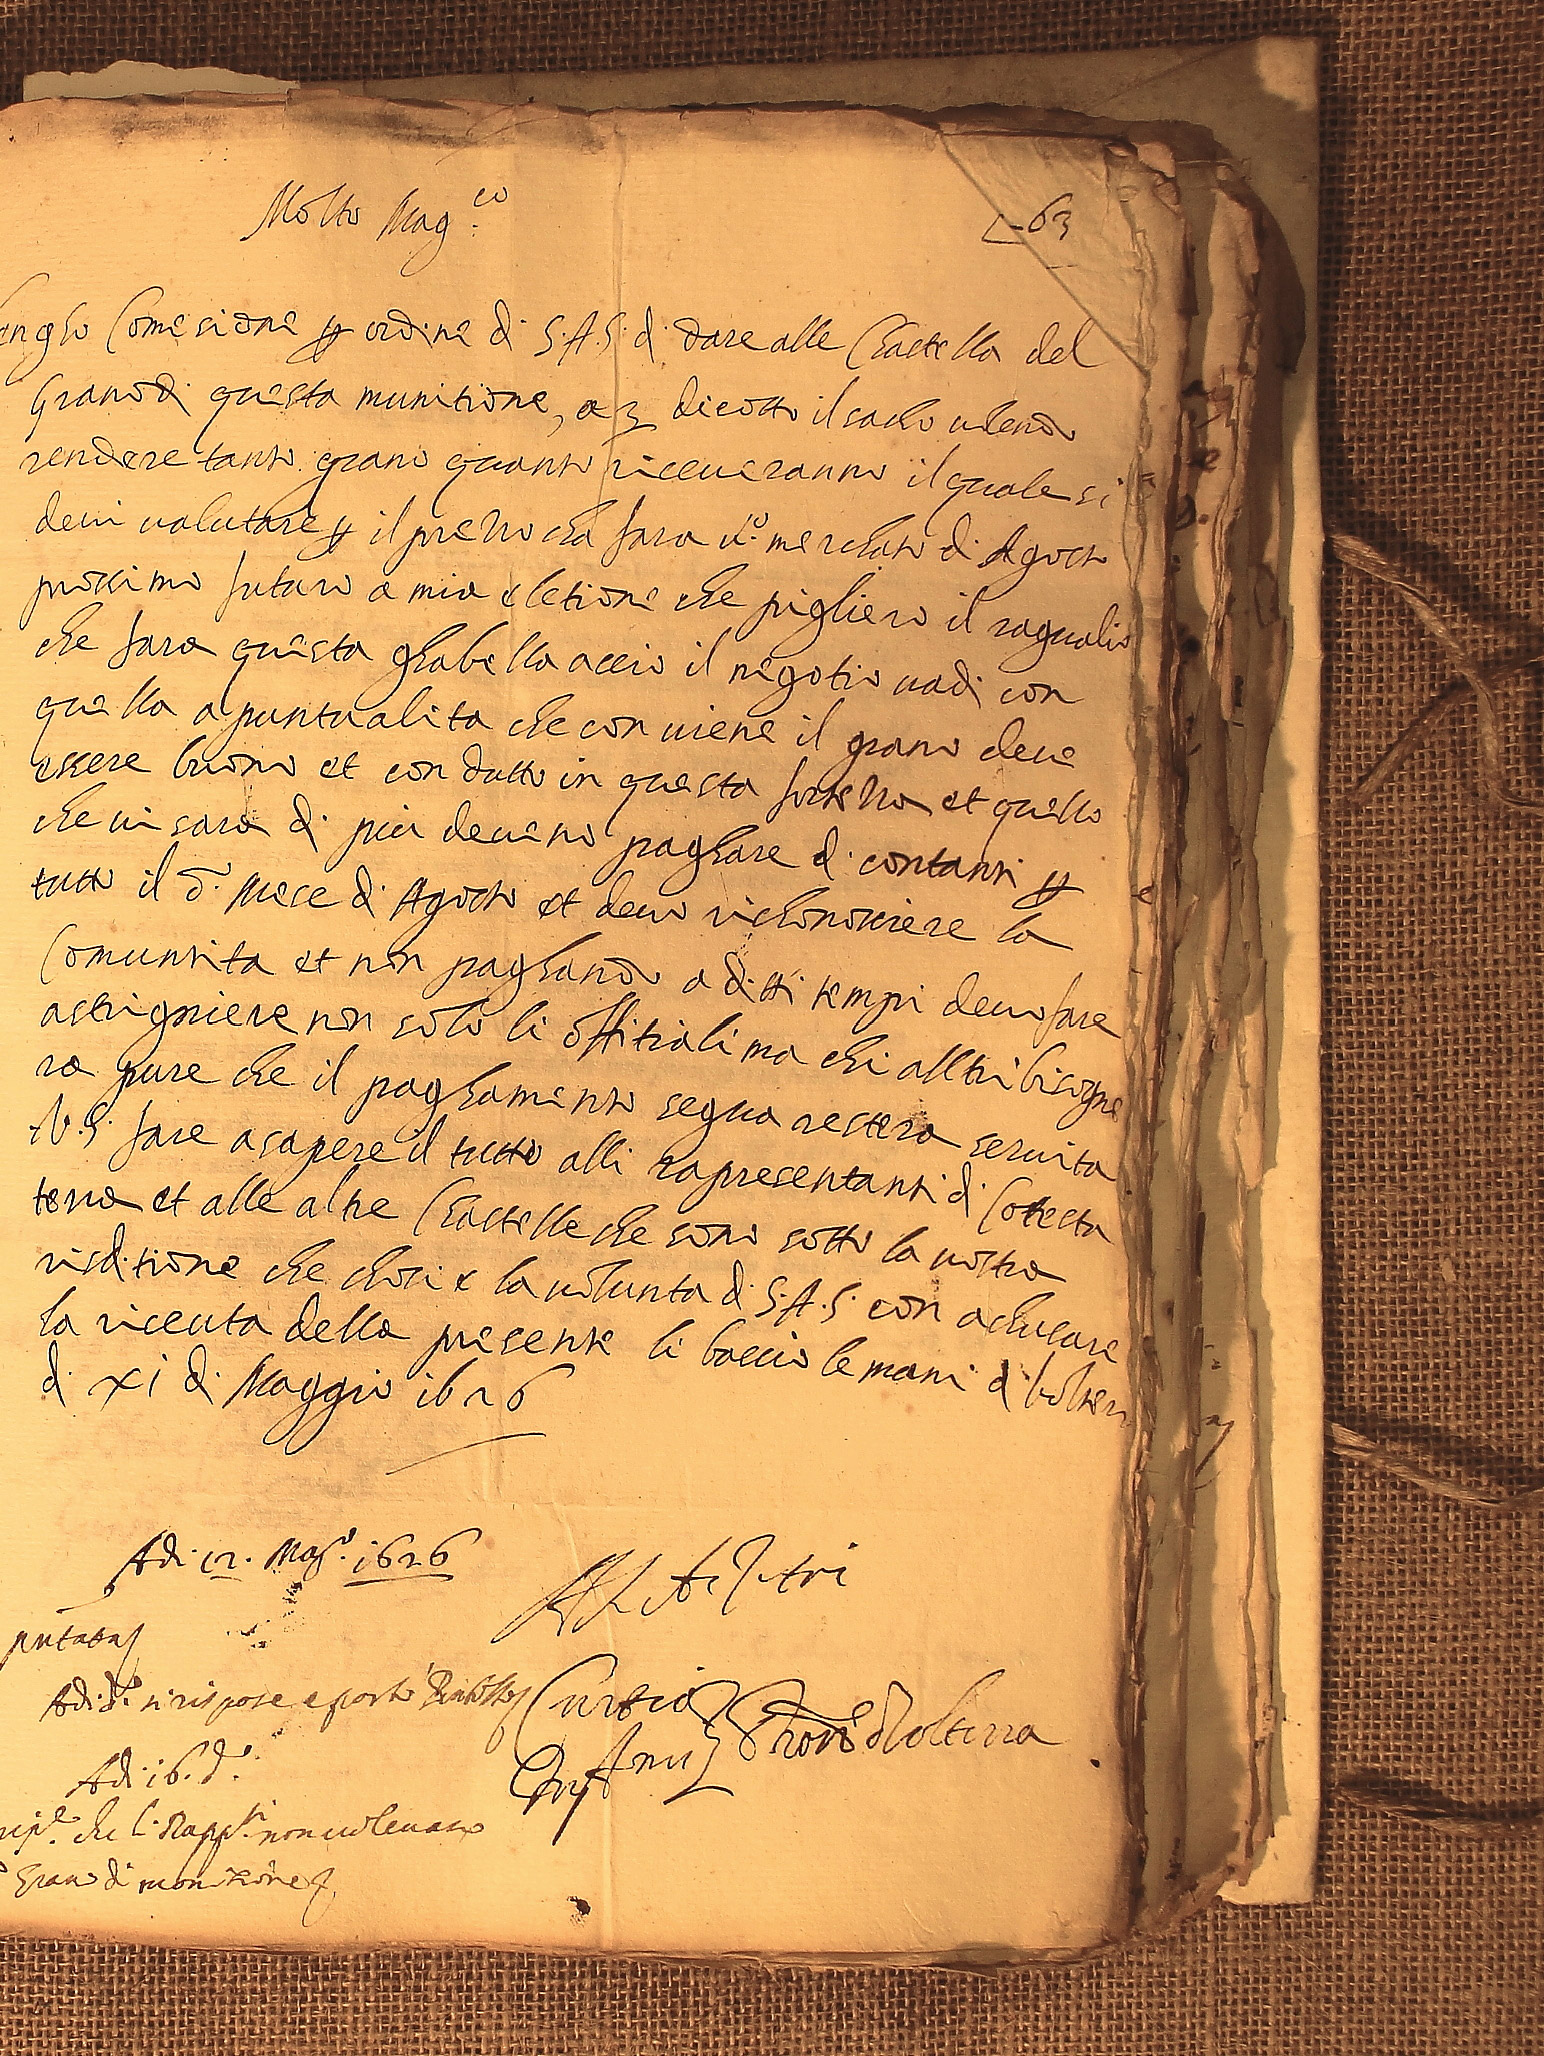 Molto Mag.co
63
engho Comesione p ordine di S.A.S. di dare alle Chastella del
grano di questa munitione, a 3 dicotto il sacho volendo
rendere tanto grano quanto riceveranno il quale si
devi valutare p il prezzo che sara il p.o merchato di Agosto
prossimo futuro a mia eletione che pigliero il ragualio
che fara questa ghabella accio il negotio vadi con
quella apuntualita che conviene il grano deve
essere buono et condutto in questa fortezza et quello
che vi sara di piu devano paghare di contanti p
tutto il d.o Mese di Agosto et devo richonosciere la
Comunnita et non paghando a ditti tempi devo fare
astrigniere non solo li offitiali ma chi alltri bisogne
ra pure che il paghamento segua restera servita
V.S. fare asapere il tutto alli rapresentanti di Cotesta
terra et alle altre Chastelle che sono sotto la vostra
risditione che chosi e la volunta di S.A.S. con achusare
la riceuta della presente li baccio le mani di Volterr
di xi di Maggio 1626
Adi 12. Mag.o 1626
Adi d.o si rispose e porto
Curtio
Prov.e di Volterra
Adi 16. d.o
che li Rapp.ti non volevano
Grano di monitione